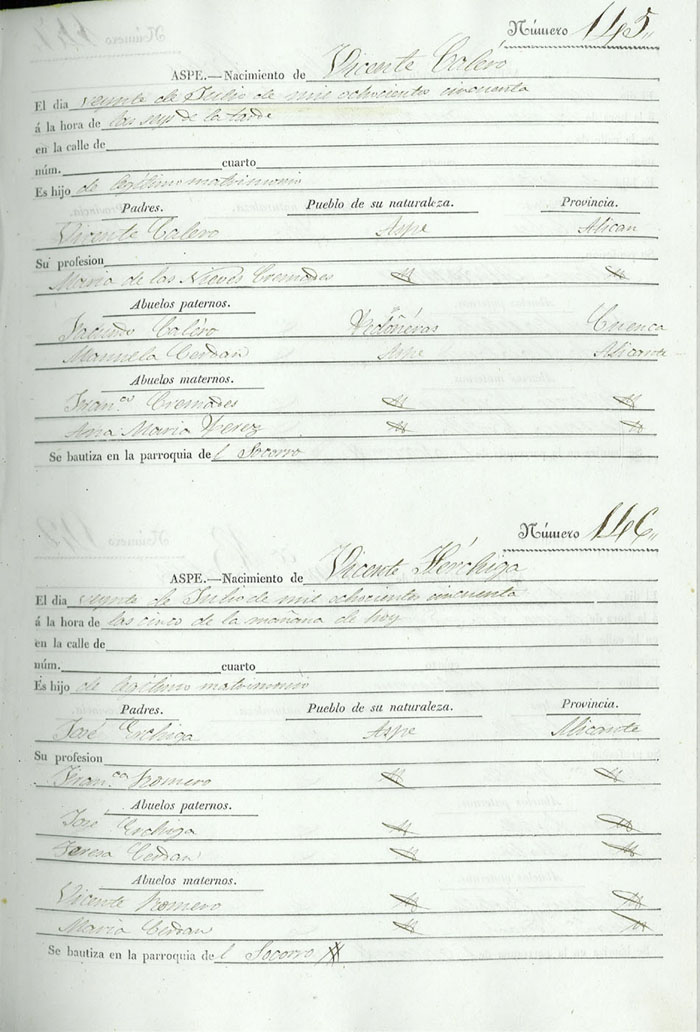 Número 145
ASPE.—Nacimiento de Vicente Caléro
El dia veynte de Julio de mil ochociento cincuenta
á la hora de las seys de la tarde
en la calle de
núm. cuarto
Es hijo de lexitimo matrimonio
Padres. Pueblo de su naturaleza. Provincia.
Vicente Calero Aspe Alican
Su profesion
Maria de las Nieves Cremades
Abuelos paternos.
Caléro Cuenca
Manuela Cerdan Aspe Alicante
Abuelos maternos.
Fran.co Cremades
Ana Maria Perez
Se bautiza en la parroquia de l Socorro
Número 146
ASPE.—Nacimiento de Vicente
El dia veynte de Julio de mil ochociento cincuenta
á la hora de las cinco de la mañana de hoy
en la calle de
núm. cuarto
Es hijo de lexitimo matrimonio
Padres. Pueblo de su naturaleza. Provincia.
José Erchiga Aspe Alicante
Su profesion
Fran.ca Romero
Abuelos paternos.
José Erchiga
Teresa Cerdan
Abuelos maternos.
Vicente Romero
Maria Cerdan
Se bautiza en la parroquia de l Socorro